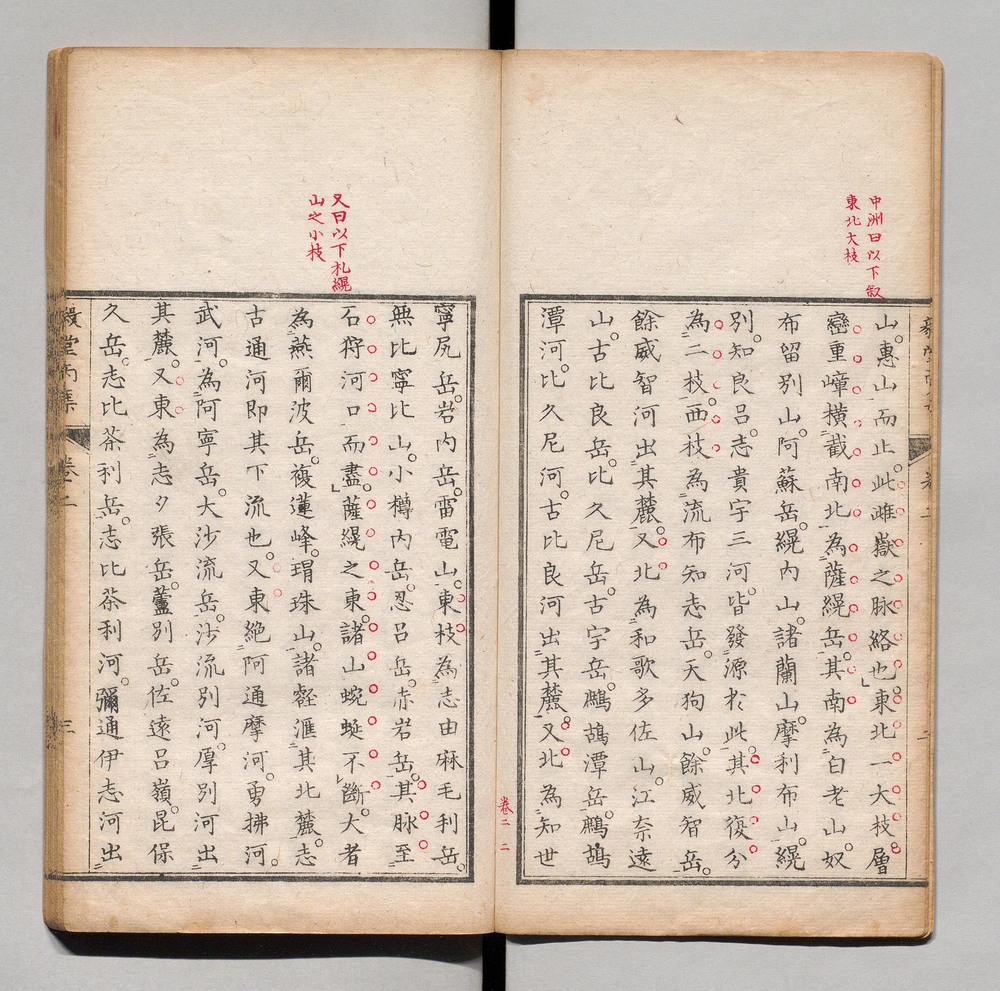 中洲曰以下敘
東北大枝
山惠山而止此雌嶽之脉絡也東北一大枝層
巒重嶂橫截南北為薩縨岳其南為白老山奴
布留別山阿蘇岳縨內山諸蘭山摩利布山縨
別知良呂志貴宇三河皆發源於此其北復分
為二枝西枝為流布知志岳天狗山餘威智岳
餘威智河出其麓又北為和歌多佐山江奈遠
山古比良岳比久尼岳古宇岳鷓鴣潭岳鷓鴣
潭河比久尼河古比良河出其麓又北為知世
卷二 二
又曰以下札縨
山之小枝
寧尻岳岩內岳雷電山東枝為志由麻毛利岳
無比寧比山小樽內岳忍呂岳赤岩岳其脉至
石狩河口而盡薩縨之東諸山蜿蜒不斷大者
為燕爾波岳複蓮峰瑁珠山諸壑滙其北麓志
古通河即其下流也又東絕阿通摩河勇拂河
武河為阿寧岳大沙流岳沙流別河厚別河出
其麓又東為志夕張岳蘆別岳佐遠呂嶺昆保
久岳志比茶利岳志比茶利河彌通伊志河出
卷二
三